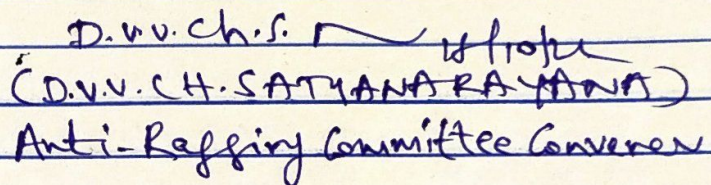 D.V.V.Ch.S.
(D.V.V.CH.SATYANARAYANA)
Anti-Ragging Committee Convener